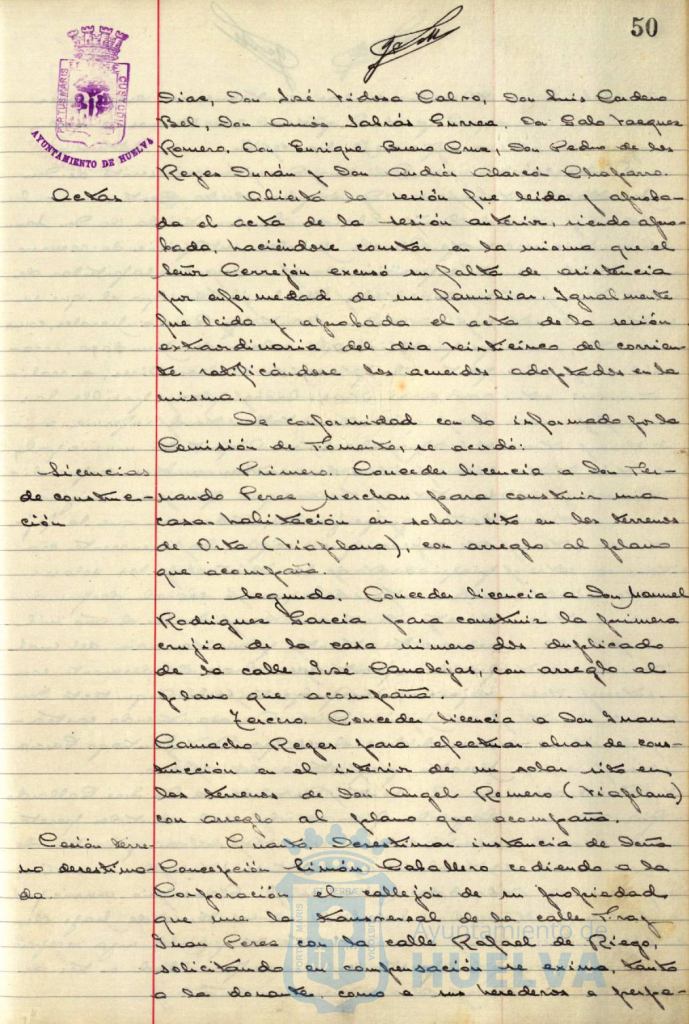 50
PORTUS MARIS ET TERRAE CUSTODIA
AYUNTAMIENTO DE HUELVA
Dias, Don José Tidosa Calvo, Don Luis Cordero
Bel, Don Amós Sabrás Gurrea, Don Galo Vazquez
Romero, Don Enrique Bueno Cruz, Don Pedro de los
Reyes Durán y Don Andrés Alarcón Chaparro.
Actas
Abierta la sesión fue leida y aproba-
da el acta de la sesión anterior, siendo apro-
bada, haciéndose constar en la misma que el
Señor Cerrejón excusó su falta de asistencia
por enfermedad de un familiar. Igualmente
fue leida y aprobada el acta de la sesión
extraordinaria del dia veinticinco del corrien-
te ratificándose los acuerdos adoptados en la
misma.
De conformidad con lo informado por la
Comisión de Fomento, se acordó:
Licencias
de construc-
ción
Primero. Conceder licencia a Don Fer-
nando Perez Merchan para construir una
casa-habitación en solar sito en los terrenos
de Orta (Viaplana), con arreglo al plano
que acompaña.
Segundo. Conceder licencia a Don Manuel
Rodriguez Garcia para construir la primera
crujia de la casa número dos duplicado
de la calle José Canalejas, con arreglo al
plano que acompaña.
Tercero. Conceder licencia a Don Juan
Camacho Reyes para efectuar obras de cons-
trucción en el interior de un solar sito en
los terrenos de Don Angel Romero (Viaplana)
con arreglo al plano que acompaña.
Cesión terre-
no desestima-
da.
Cuarto. Desestimar instancia de Doña
Concepción Limón Caballero cediendo a la
Corporación el callejón de su propiedad
que une la transversal de la calle Fray
Juan Perez con la calle Rafael de Riego,
solicitando en compensación se exima, tanto
a la donante como a sus herederos a perpe-
Ayuntamiento de
HUELVA